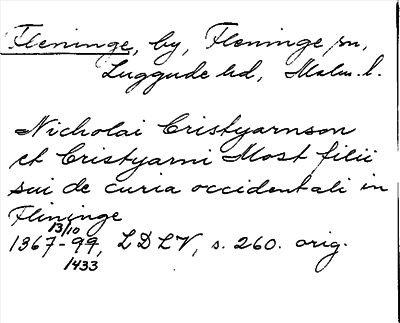 Fleninge, by, Fleninge sn,
Luggude hd, Malm. l.
Nicholai Cristyarnson
et Cristyarni Most filii
sui de curia occidentali in
Flininge
13/10
1367-99, LDLV, s. 260. orig.
1433